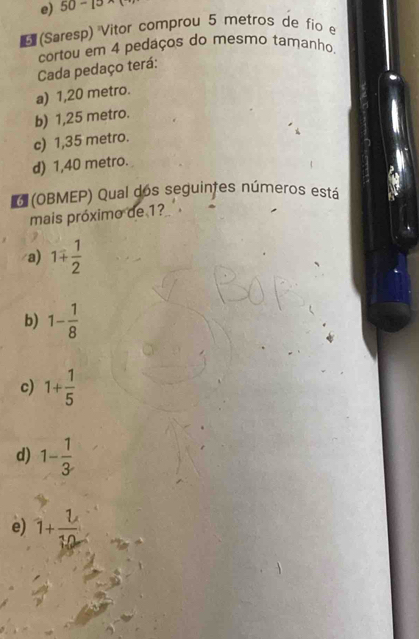 e) 50 – [5 ×
5 (Saresp) Vitor comprou 5 metros de fio e
cortou em 4 pedaços do mesmo tamanho.
Cada pedaço terá:
a) 1,20 metro.
b) 1,25 metro.
c) 1,35 metro.
d) 1,40 metro.
6 (OBMEP) Qual dos seguintes números está
mais próximo de 1?
a) 1+\frac{1}{2}
b) 1-\frac{1}{8}
c) 1+\frac{1}{5}
d) 1-\frac{1}{3}
e) 1+\frac{1}{10}